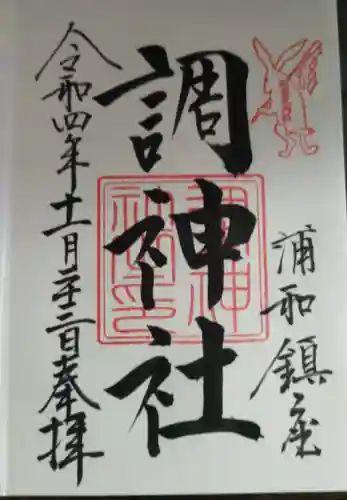 浦和鎮座
調神社
令和四年十一月二十三日奉拝